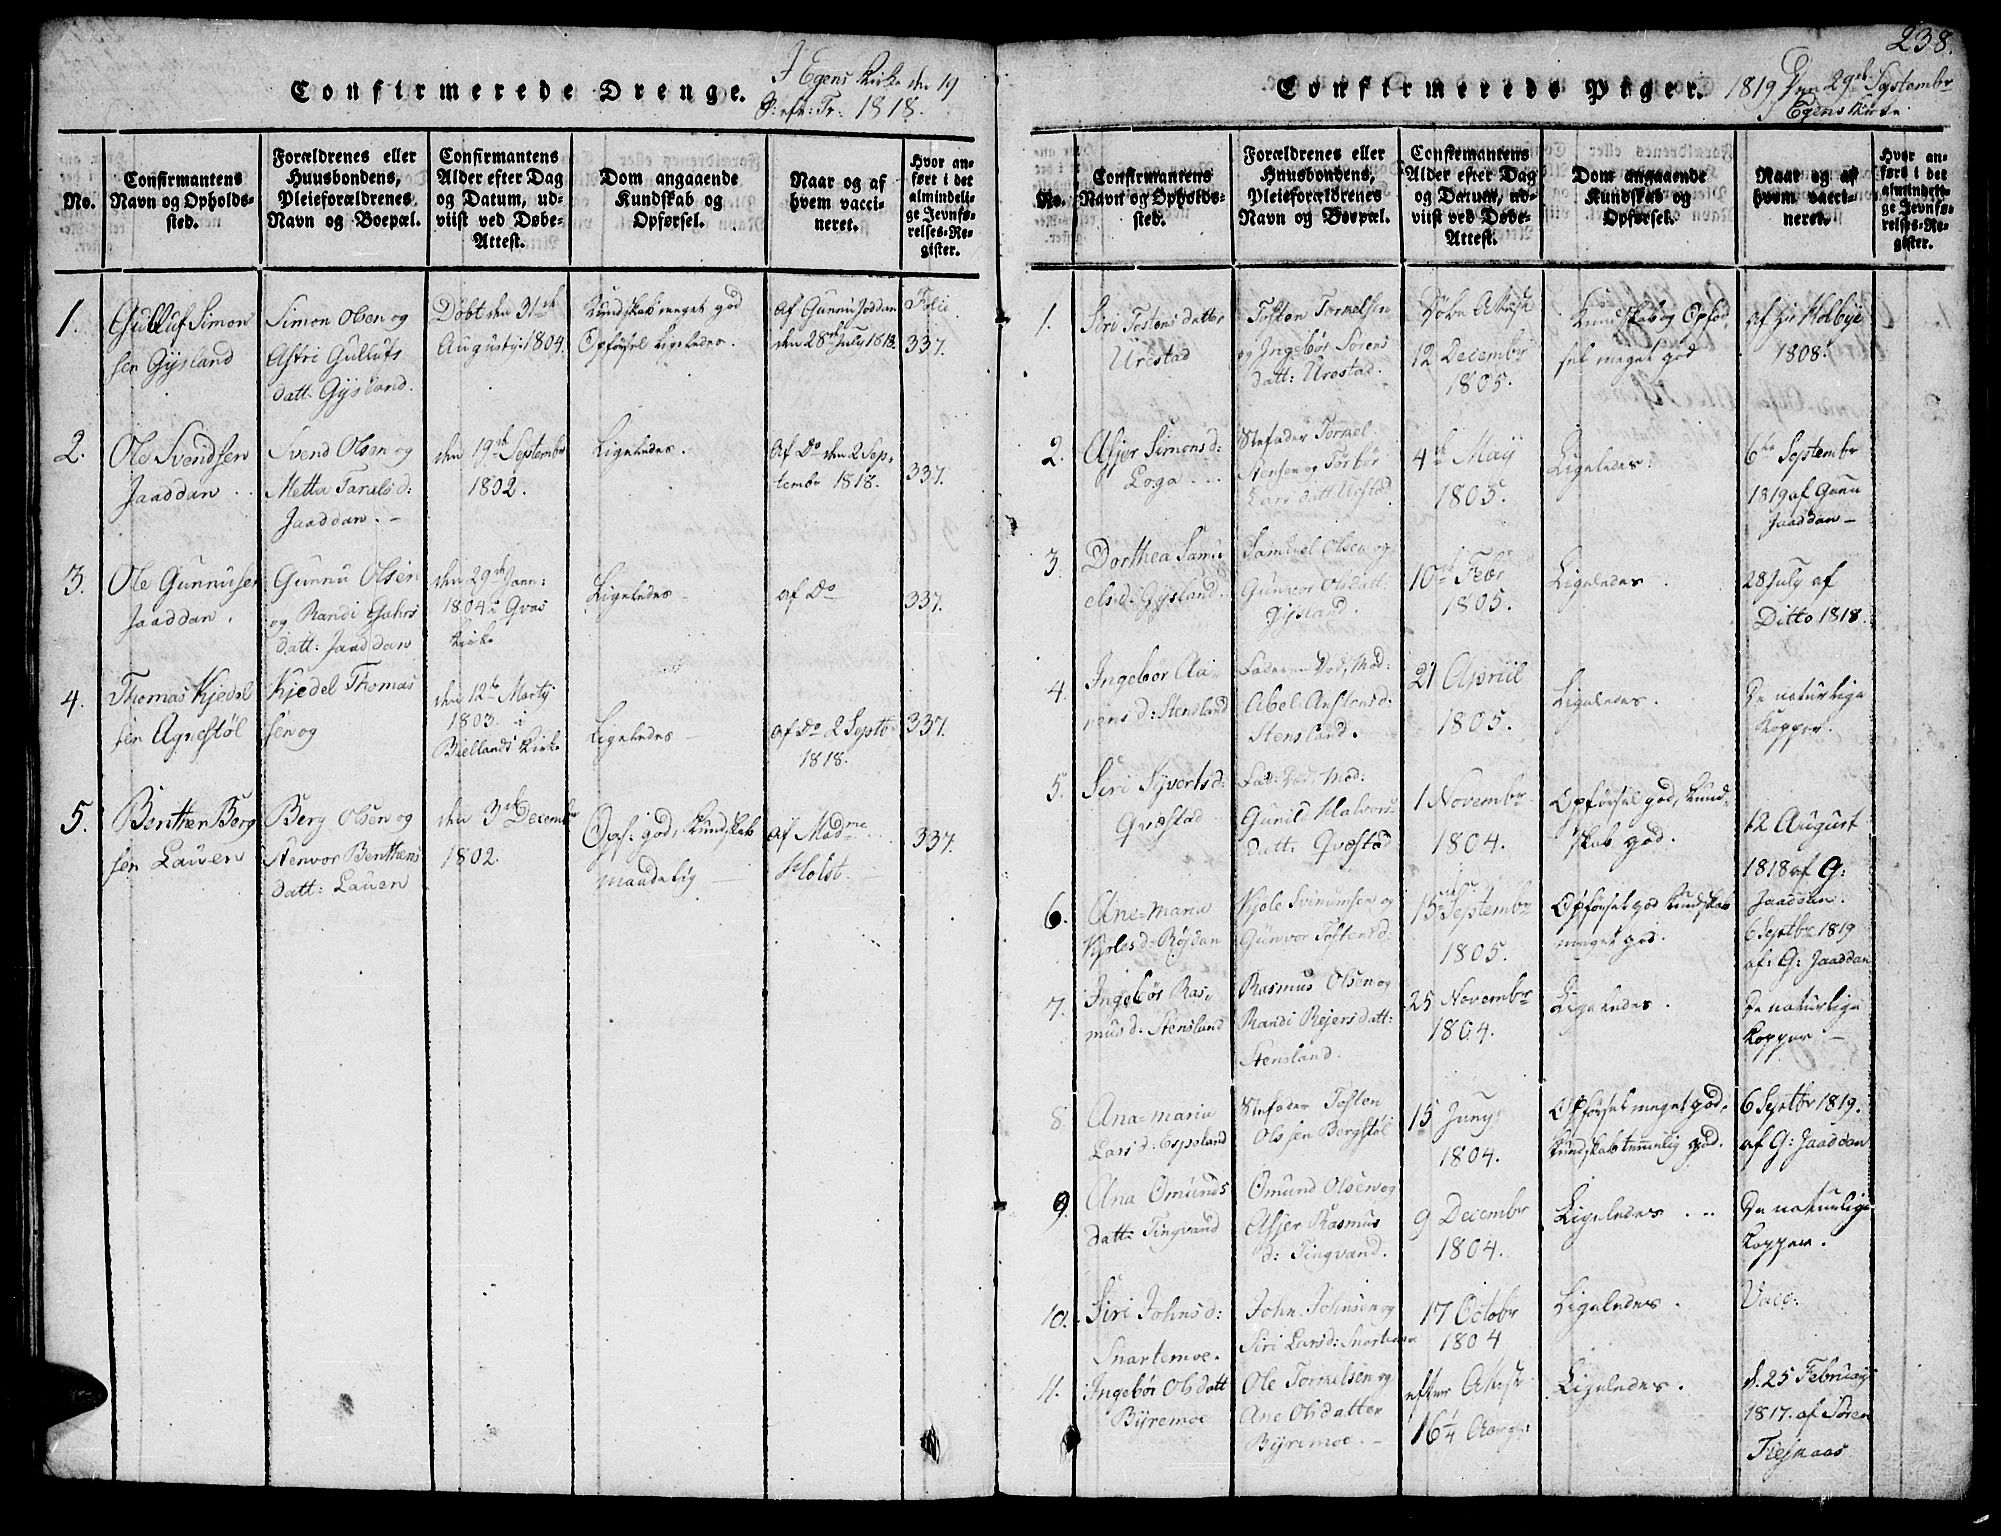 238.
Confirmerede Drenge.
I Egens Kirke den 19
S: eft: Tr: 1818.
No.
Confirmantens Navn og Opholds-sted.
Forældrenes eller Huusbondens, Pleieforældrenes Navn og Boepæl.
Confirmantens Alder efter Dag og Datum, ud-viist ved Døbe-Attest.
Dom angaaende Kundskab og Opførsel.
Naar og af hvem vacci-neret.
Hvor an-ført i det almindeli-ge Jevnfø-relses-Re-gister.
1.
Gulluf Simon
sen Gysland
Simon Olsen og
Astri Gullufs
datt: Gysland.
Døbt den 31te
Augusty: 1804.
Kundskab meget god
Opførsel Ligeledes.
af Gunnu Joddan
den 28de July 1818.
Folio
337.
2.
Ole Svendsen
Jaaddan
Svend Olsen og
Metta Taralsd:
Jaaddan.
den 19de September
1802.
Ligeledes.
af Do den 2 Sep-
tembr 1818.
337.
3.
Ole Gunnusen
Jaaddan.
Gunnu Olsen
og Randi Gahrs
datt: Jaaddan
den 29de Jann:
1804 i Qvas
Kirke
Ligeledes
af Do
337.
4.
Thomas Kjedel
sen Agnestøl
Kjedel Thomas
sen og
den 12te Marty
1803. i
Biellands Kirke
Ligeledes
af Do 2 Septb
1818.
337.
5.
Benthen Berg
sen Lauen
Berg Olsen og
Nenvor Benthens
datt: Lauen
den 3de December
1802.
Opf: god, Kundskab
maadelig
af Madme
Holst.
337.
Confirmerede Piger.
1819 den 29de Septembr
I Egens Kirke
No.
Confirmantens Navn og Opholds-sted.
Forældrenes eller Huusbondens, Pleieforældrenes Navn og Boepæl.
Confirmantens Alder efter Dag og Datum, ud-viist ved Døbe-Attest.
Dom angaaende Kundskab og Opførsel.
Naar og af hvem vacci-neret.
Hvor an-ført i det almindeli-ge Jevnfø-relses-Re-gister.
1.
Siri Tostens datter
Urestad
Tosten Tormelsen
og Ingebør Sørens
datt: Urestad.
Døbe Attest
12 December
1805.
Kundskab og Opfør
sel meget god
af Hr Holbye
1808.
2.
Asjer Simonsd:
Loga
Stefader Tormel
Stensen og Torbør
Lars datt Urstad.
4de May
1805.
Ligeledes.
6te Septembr
1819 af Gunu
Jaaddan
3.
Dorthea Samu
elsd: Gysland.
Samuel Olsen og
Gunvor Olsdatt:
Gysland.
10de Febr
1805.
Ligeledes.
28 July af
Ditto 1818.
4.
Ingebør Aa-
nensd: Stensland
Faderen Død, Mod:
Abel Anstensd:
Stensland.
21 Apriil
1805.
Ligeledes.
De naturlige
Kopper.
5.
Siri Syvertsd:
Qvæstad
Fad: Død, Mod:
Gunild Halvors
datt: Qvæstad
1 November
1804.
Opførsel god, Kund-
skab god.
12 August
1818 af G:
Jaaddan.
6.
Ane=Maria
Kjølesd: Røjdan
Kjøle Svinumsen og
Gunvor Tostensd:
15de Septembr
1805.
Opførsel god Kundskab
meget god.
6 Septbr 1819
af: G: Jaaddan
7.
Ingebør Ras-
musd: Stensland
Rasmus Olsen og
Randi Rejersdatt:
Stensland.
25 Novembr
1804.
Ligeledes.
De naturlige
Kopper
8
Ana=Maria
Larsd: Espeland
Stefader Tosten
Olssen Bergstøl
15 Juny:
1804.
Opførsel meget god,
Kundskab temmelig god.
6 Septbr 1819.
af G: Jaaddan
9.
Ana Omunds
datt: Tingvand
Omund Olsen og
Asjer Rasmus
d: Tingvand.
9 Decembr
1804.
Ligeledes
De naturlige
Kopper.
10.
Siri Johnsd:
Snartemoe.
John Johnsen og
Siri Larsd: Snartemoe
17 Octobr
1804
Ligeledes.
Vacc:
11.
Ingebør Olsdatt
Byremoe
Ole Tormelsen og
Ane Olsdatter
Byremoe.
efter Attest
16 1/4 Aar
Ligeledes.
d. 25 February
1817. af Søren